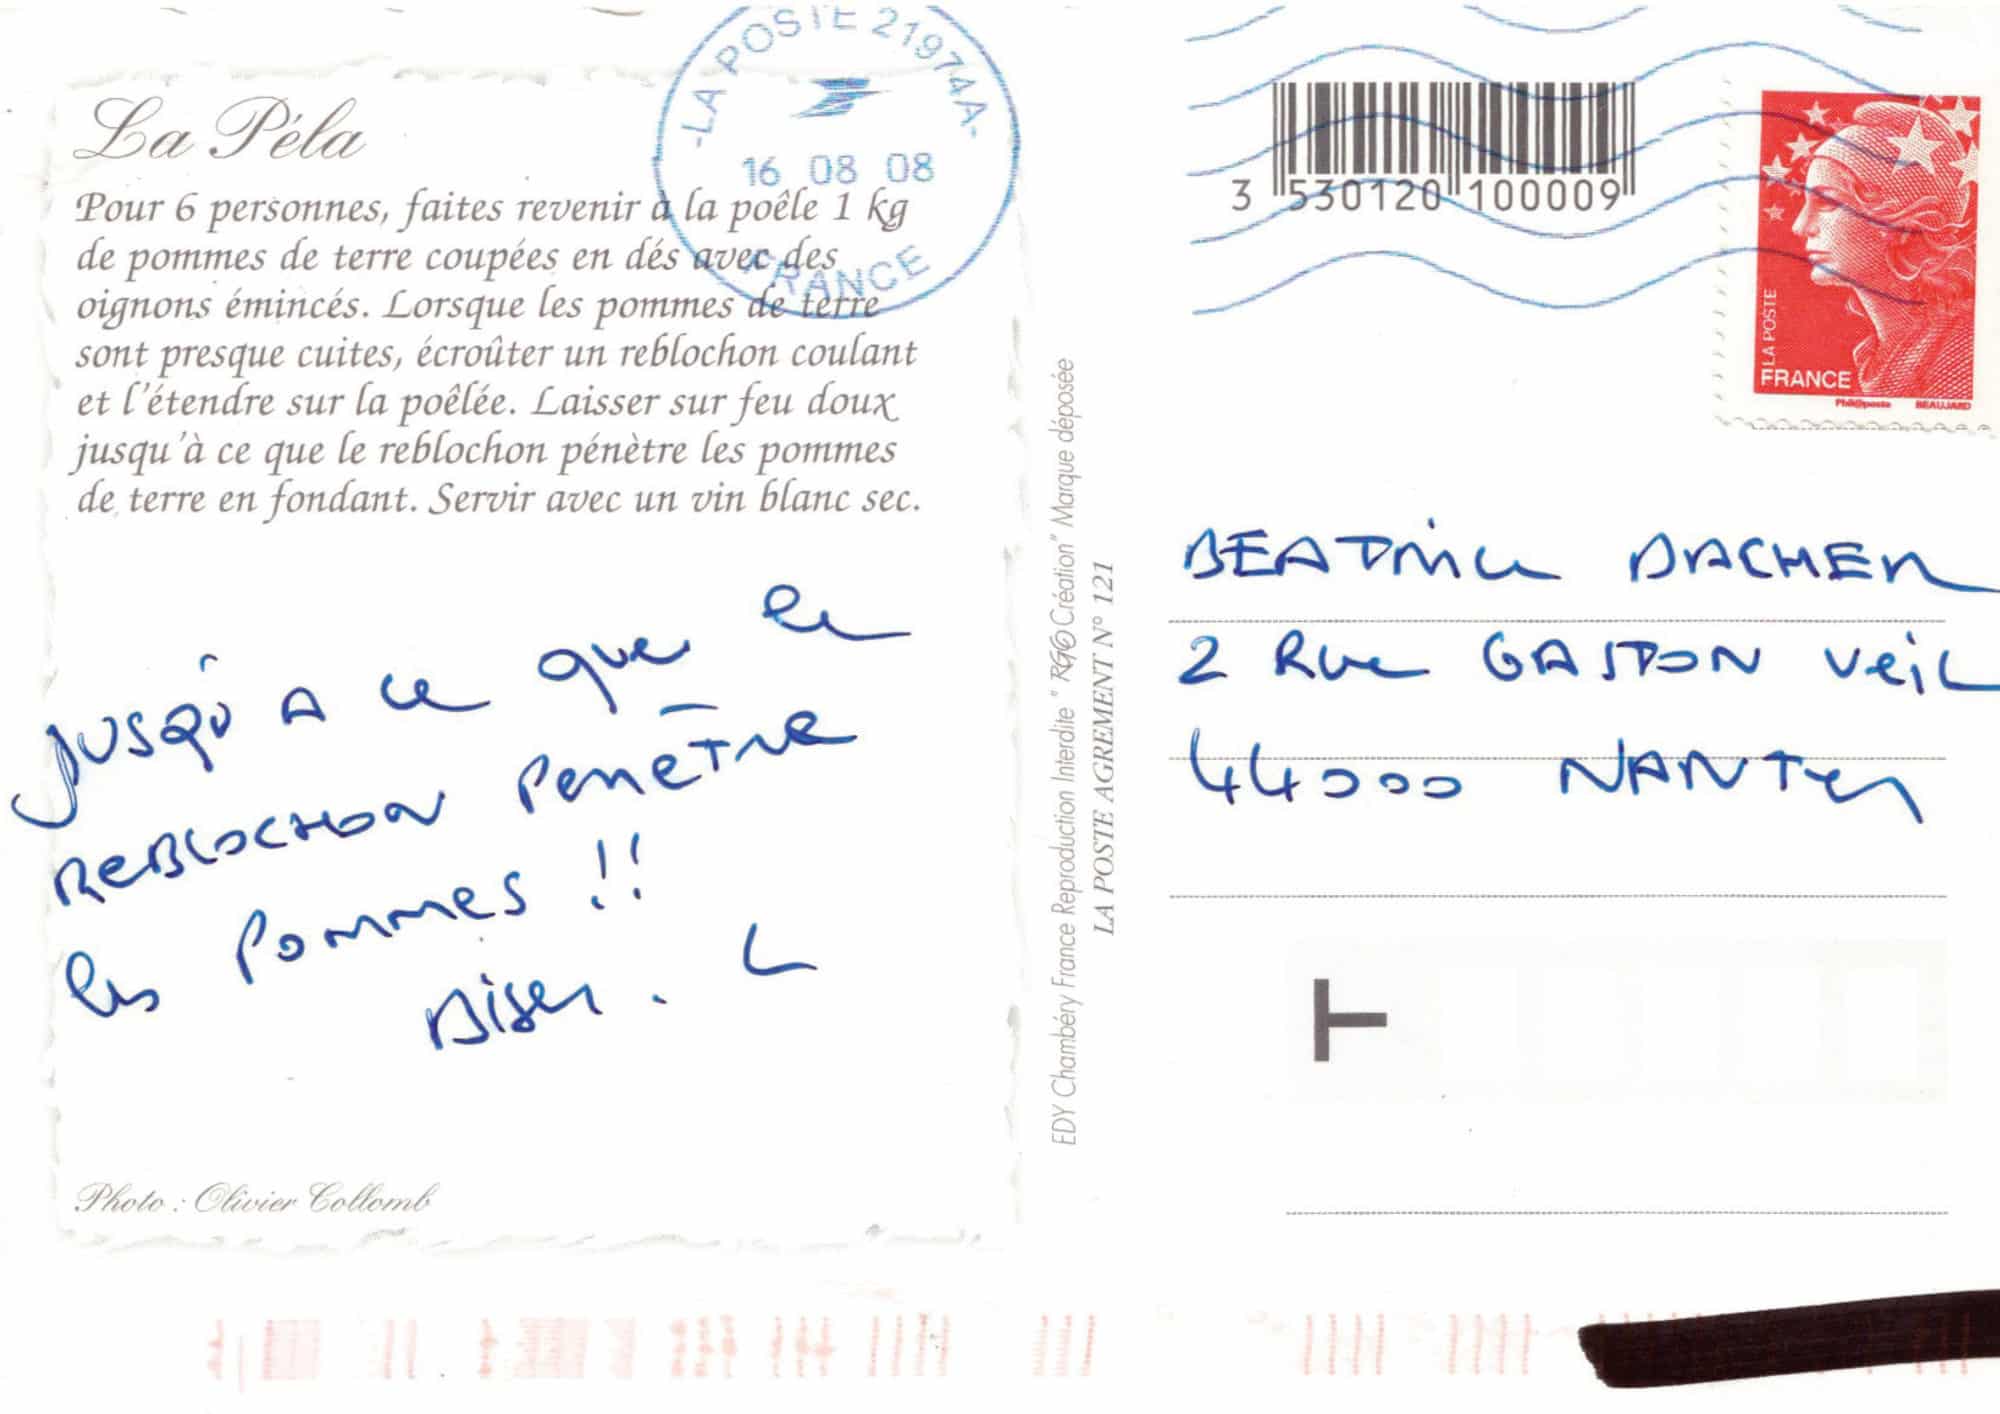 La Péla
Pour 6 personnes, faites revenir à la poêle 1 kg
de pommes de terre coupées en dés avec des
oignons émincés. Lorsque les pommes de terre
sont presque cuites, écroûter un reblochon coulant
et l'étendre sur la poêlée. Laisser sur feu doux
jusqu'à ce que le reblochon pénètre les pommes
de terre en fondant. Servir avec un vin blanc sec.
JUSQU'A ce que le
REBLOCHON PENÈTRE
les POMMES !!
BISES. L
Photo : Olivier Collomb
-LA POSTE 21974A-
16 08 08
FRANCE
EDY Chambéry France Reproduction Interdite " RGO Création" Marque déposée
LA POSTE AGREMENT N° 121
3 530120 100009
LA POSTE
FRANCE
Phil@poste BEAUJARD
BEATRICE DACHER
2 Rue GASTON VEIL
44000 NANTES
T